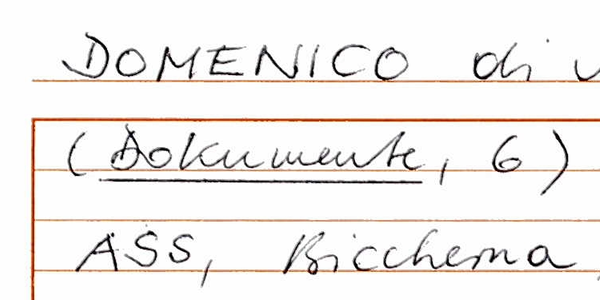 DOMENICO di
(Dokumente, 6)
ASS, Biccherna,